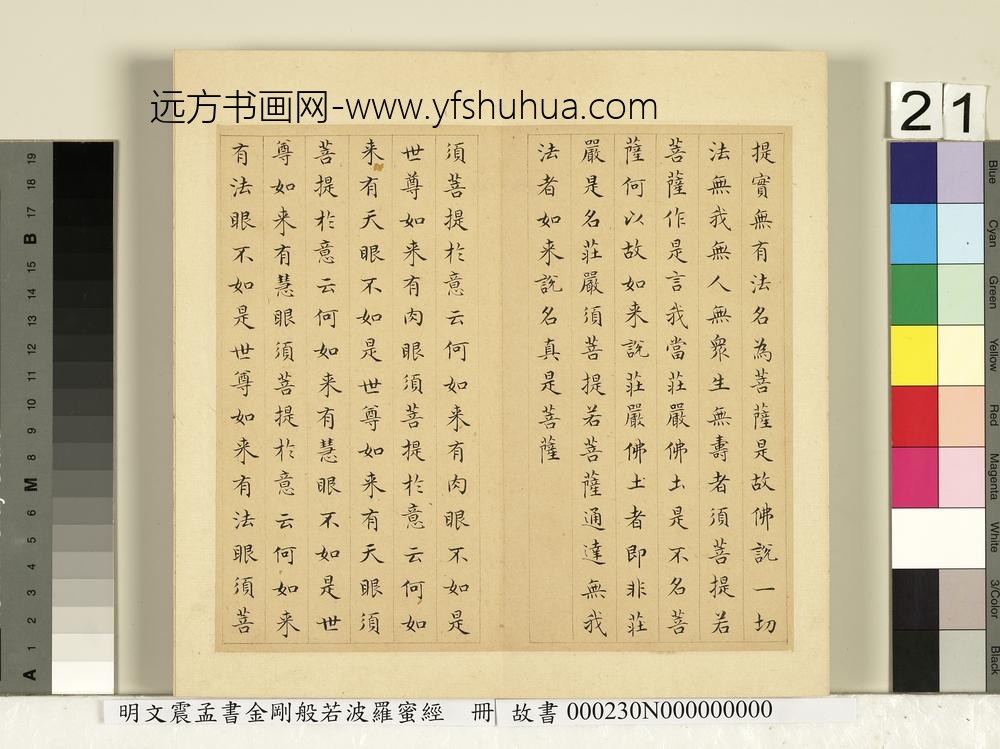 远方书画网-www.yfshuhua.com
21
提實無有法名為菩薩是故佛說一切
法無我無人無眾生無壽者須菩提若
菩薩作是言我當莊嚴佛土是不名菩
薩何以故如来說莊嚴佛土者即非莊
嚴是名莊嚴須菩提若菩薩通達無我
法者如来說名真是菩薩
須菩提於意云何如来有肉眼不如是
世尊如来有肉眼須菩提於意云何如
来有天眼不如是世尊如来有天眼須
菩提於意云何如来有慧眼不如是世
尊如来有慧眼須菩提於意云何如来
有法眼不如是世尊如来有法眼須菩
Blue
Cyan
Green
Yellow
Red
Magenta
White
3/Color
Black
19
18
17
B
15
14
13
12
11
10
9
8
M
6
5
4
3
2
1
A
明文震孟書金剛般若波羅蜜經 冊 故書 000230N000000000